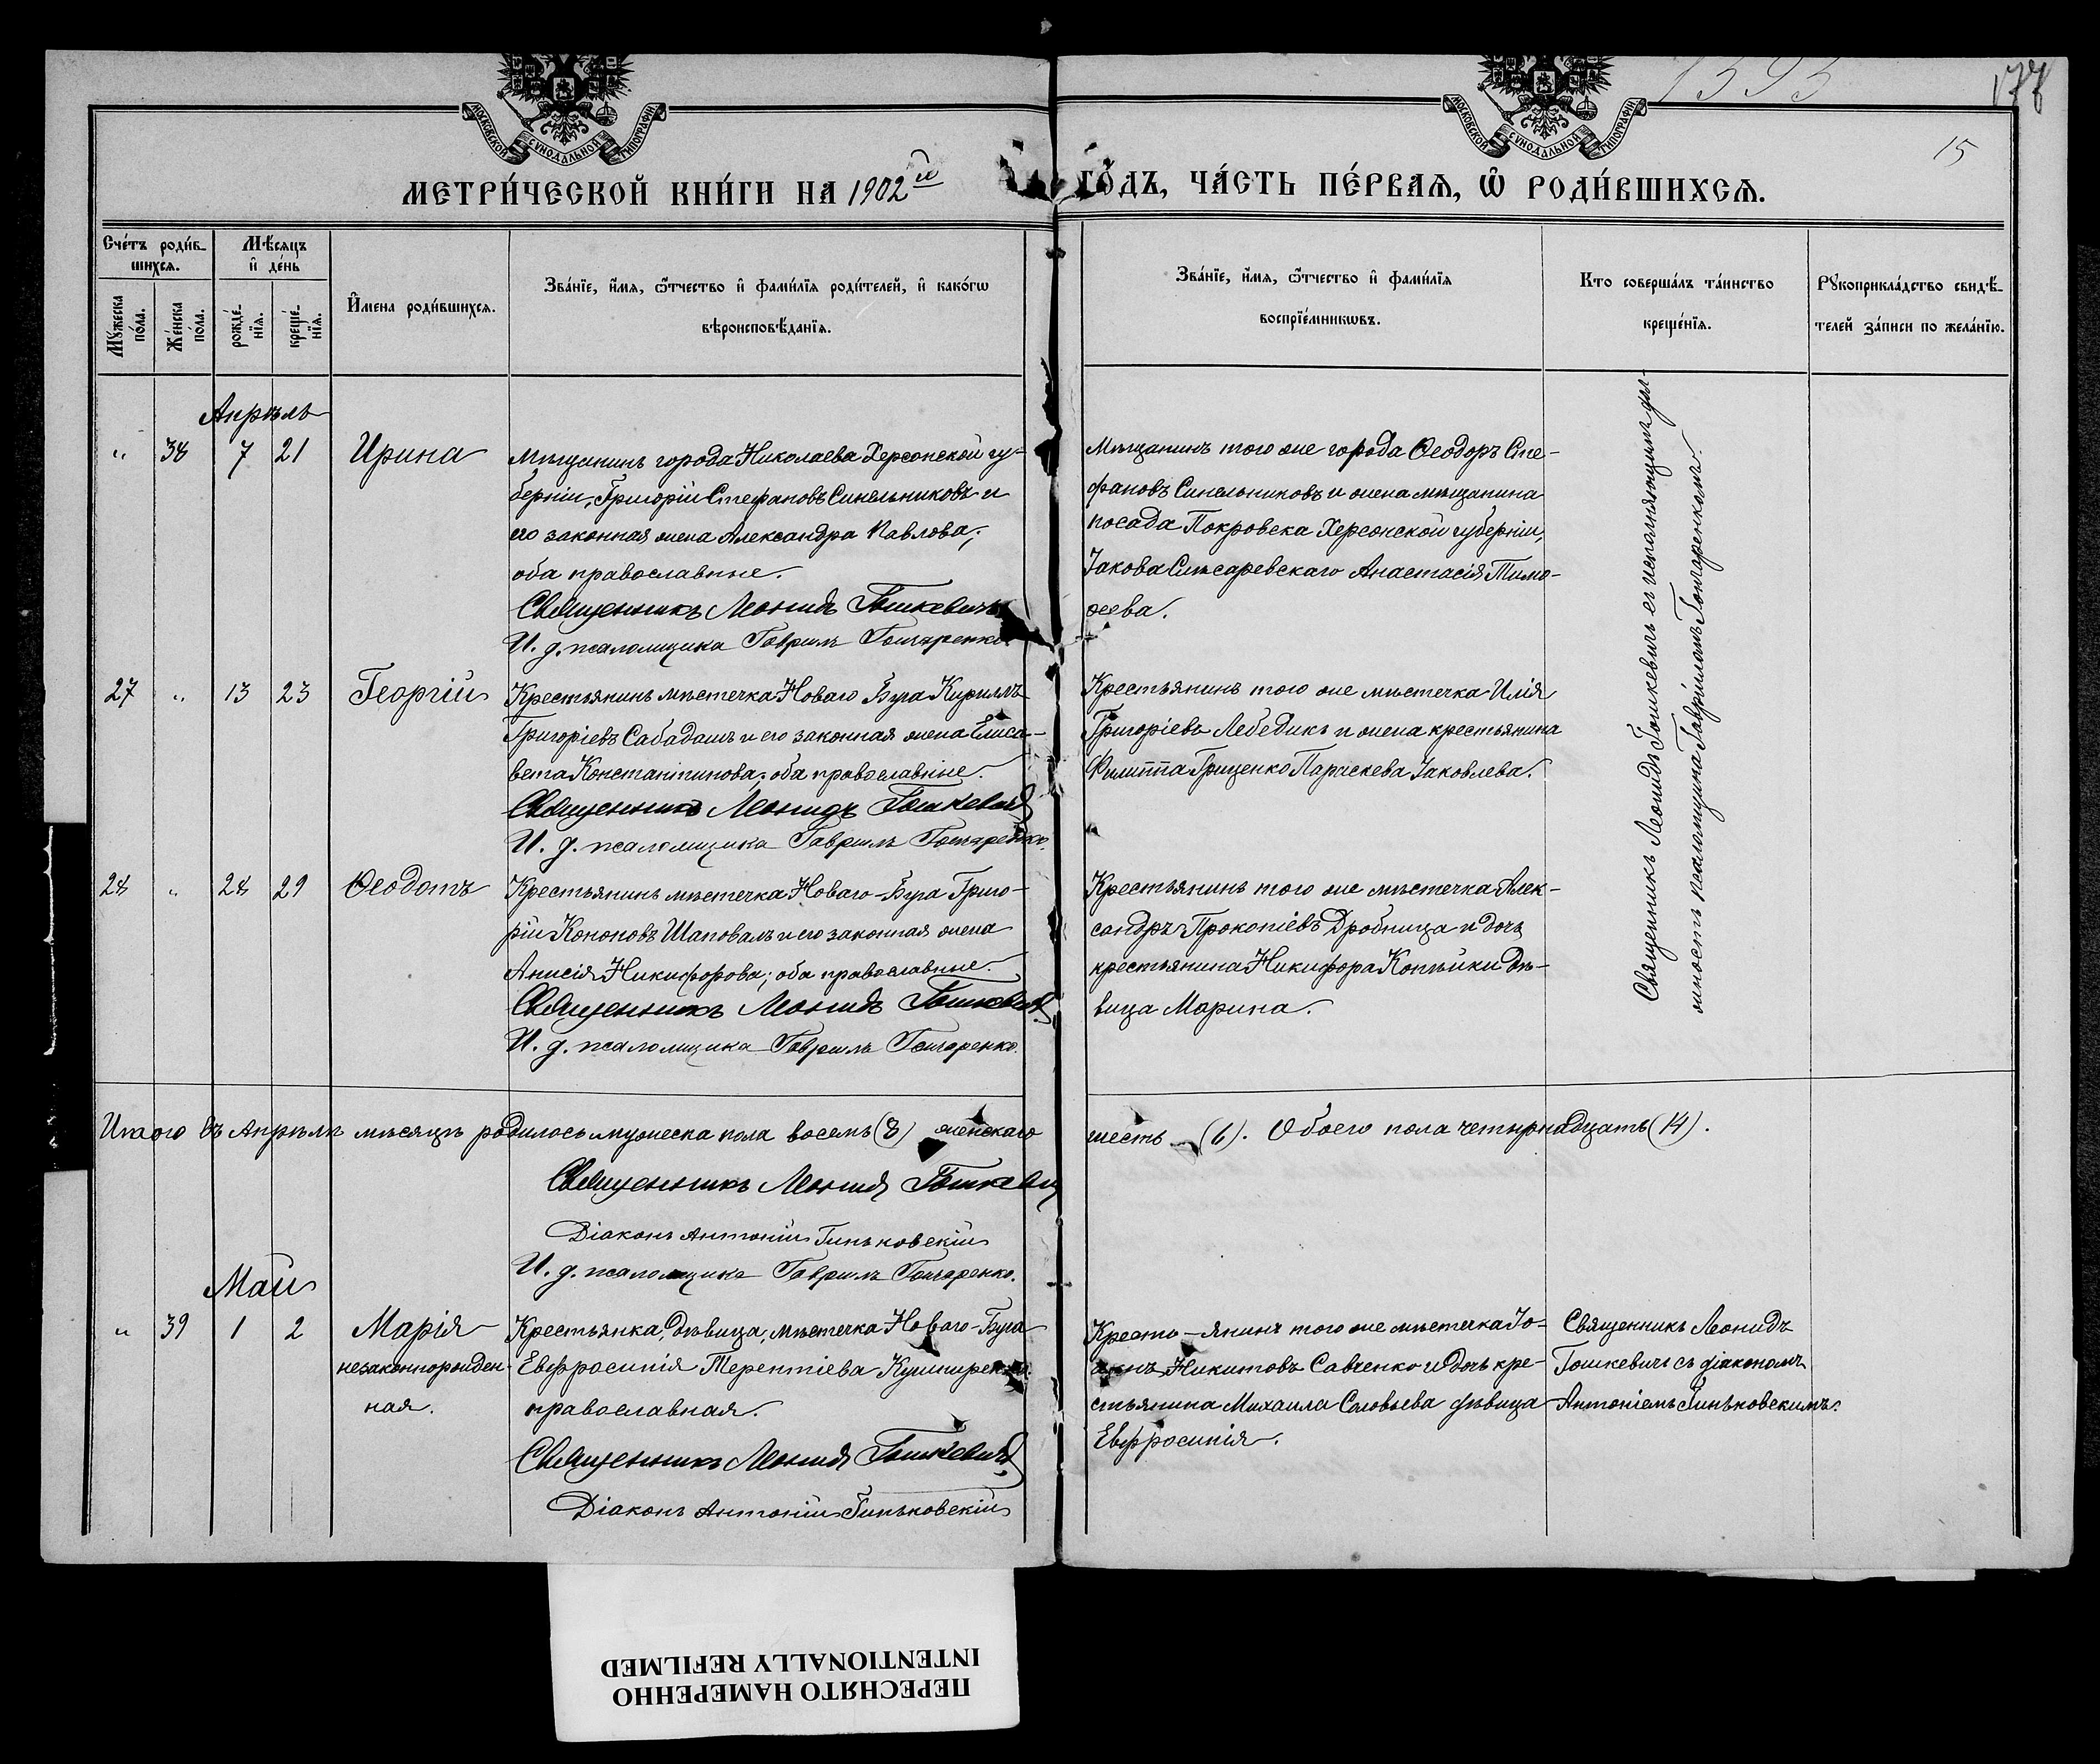 МОСКОВСКОЙ СѴНОДАЛЬНОЙ ТИПОГРАФІИ
МОСКОВСКОЙ СѴНОДАЛЬНОЙ ТИПОГРАФІИ
1393
177
15
МЕТРИ́ЧЕСКОЙ КНИ́ГИ НА 1902й ГО́ДЪ, ЧА́СТЬ ПЕ́РВАЯ, Ѡ РОДИ́ВШИХСЯ.
Сче́тъ роди́в-
шихся.
Мꙋ́жеска по́ла.
Же́нска по́ла.
Мѣ́сяцъ и҆ де́нь
рожде́-нїя.
креще́-нїя.
И҆́мена роди́вшихся.
Зва́нїе, и҆́мя, ѻ҆́тчество и҆ фами́лїя роди́телей, и҆ како́гѡ
вѣроисповѣ́данїя.
Зва́нїе, и҆́мя, ѻ҆́тчество и҆ фами́лїя
воспрїе́мникѡвъ.
Кто соверша́лъ та́инство
креще́нїя.
Рꙋкоприкла́дство свидѣ́-
телей за́писи по жела́нїю.
Апрѣль
" 38 7 21 Ирина
Мѣщанинъ города Николаева Херсонской гу-
берніи, Григорій Стефановъ Синельниковъ и
его законная жена Александра Павлова;
оба православные.
Священникъ Леонидъ Гошкевичъ
И. д. псаломщика Гавріилъ Гончаренко.
Мѣщанинъ того же города Ѳеодоръ Сте-
фановъ Синельниковъ и жена мѣщанина
посада Покровска Херсонской губерніи,
Іакова Слѣсаревскаго Анастасія Тимо-
ѳеева.
27 " 13 23 Георгій
Крестьянинъ мѣстечка Новаго Буга Кириллъ
Григоріевъ Сабадашъ и его законная жена Елиса-
вета Константинова; оба православные.
Священникъ Леонидъ Гошкевичъ
И. д. псаломщика Гавріилъ Гончаренко.
Крестьянинъ того же мѣстечка Илія
Григоріевъ Лебедикъ и жена крестьянина
Филиппа Гриценко Параскева Іаковлева.
28 " 28 29 Ѳеодотъ
Крестьянинъ мѣстечка Новаго-Буга Григо-
рій Кононовъ Шаповалъ и его законная жена
Анисія Никифорова; оба православные.
Священникъ Леонидъ Гошкевичъ
И. д. псаломщика Гавріилъ Гончаренко.
Крестьянинъ того же мѣстечка Алек-
сандръ Прокопіевъ Дробница и дочь
крестьянина Никифора Копѣйки дѣ-
вица Марина.
Священникъ Леонидъ Гошкевичъ съ исполняющимъ дол-
жность псаломщика Гавріиломъ Гончаренкомъ.
Итого въ Апрѣлѣ мѣсяцѣ родилось мужеска пола восемь (8) женскаго шесть (6). Обоего пола четырнадцать (14).
Священникъ Леонидъ Гошкевичъ
Діаконъ Антоній Гиньковскій
И. д. псаломщика Гавріилъ Гончаренко.
Май
" 39 1 2 Марія
незаконнорожден-
ная.
Крестьянка, дѣвица, мѣстечка Новаго-Буга
Евфросинія Терентіева Кушниренко
православная.
Священникъ Леонидъ Гошкевичъ
Діаконъ Антоній Гиньковскій
Кресть-янинъ того же мѣстечка Іо-
аннъ Никитовъ Савченко и дочь кре-
стьянина Михаила Соловьева дѣвица
Евфросинія.
Священникъ Леонидъ
Гошкевичъ съ діакономъ
Антоніемъ Гиньковскимъ.
ПЕРЕСНЯТО НАМЕРЕННО
INTENTIONALLY REFILMED